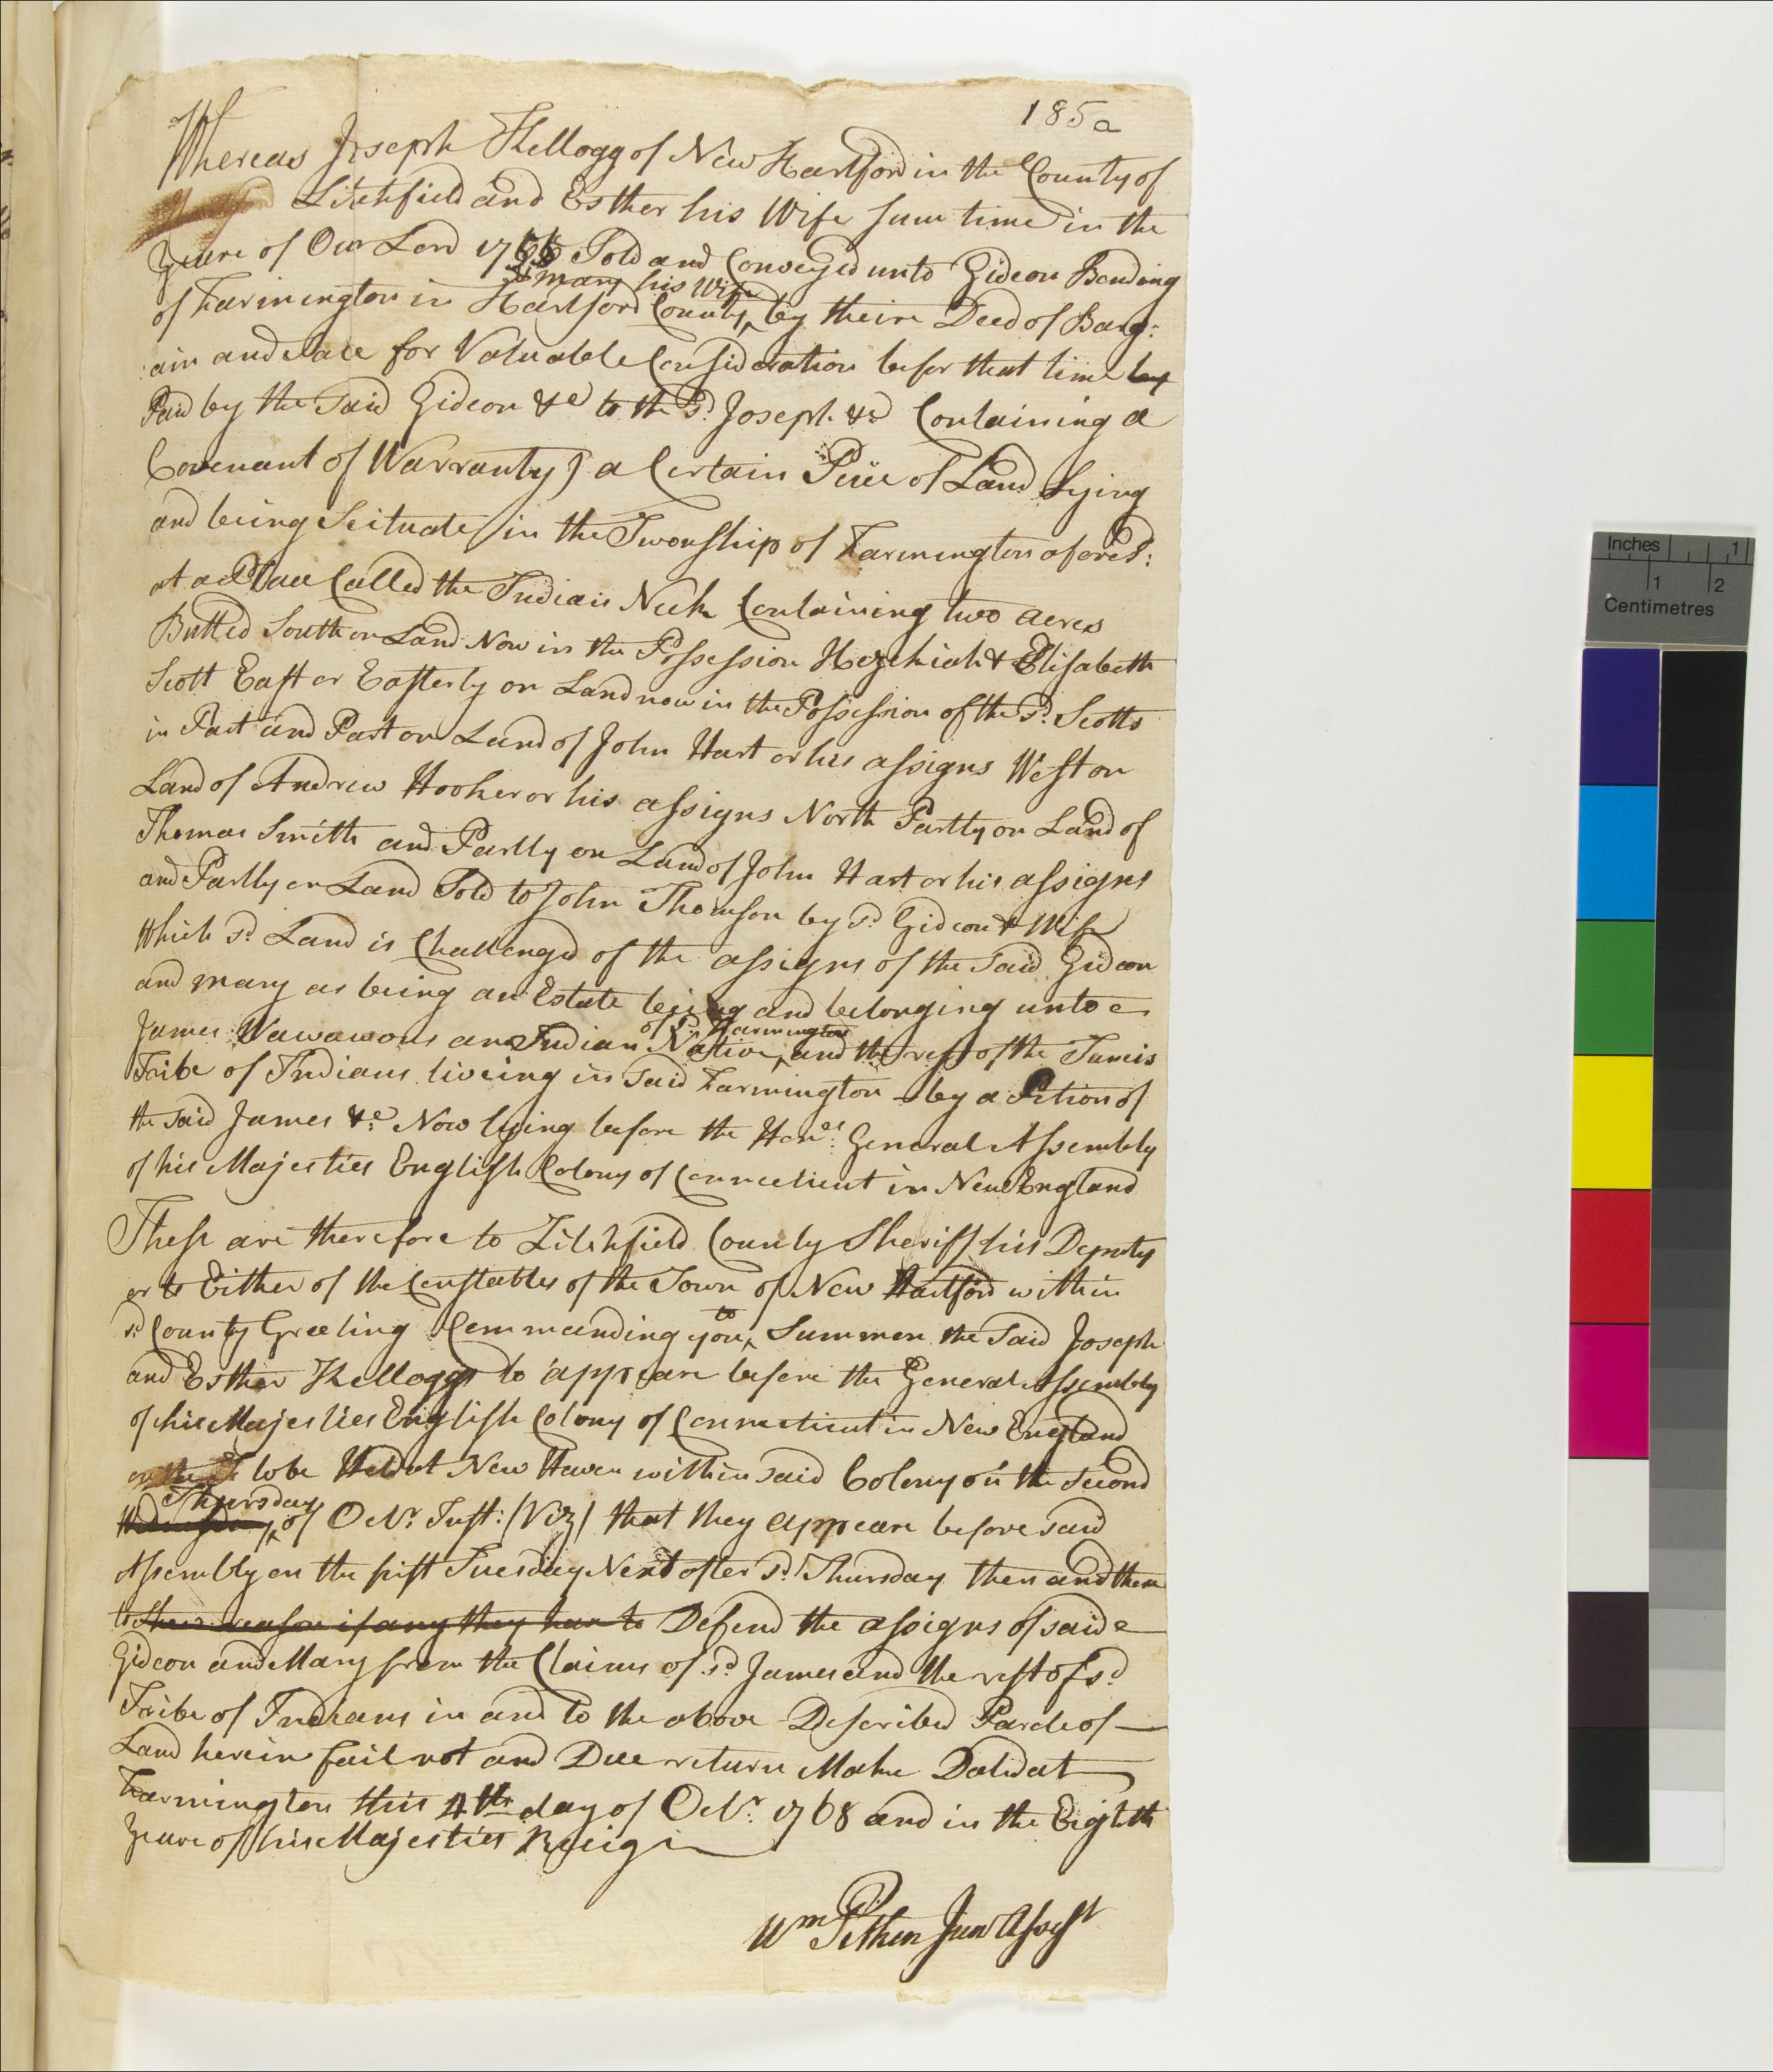 185a
Whereas Joseph Kellogg of New Hartford in the County of
Litchfield and Esther his Wife sum time in the
yeare of Our Lord Sold and Conveyed unto Gideon Bending
& mary his Wife
of Farmington in Hartford County ^ by theire Deed of Barg:
:ain and Sale for Valuable Consideration befor that time by
Paid by the Said Gideon &c to the sd. Joseph &c Containing a
Covenant of Warranty) a Certain Peice of Land Lying
and being Scituate in the Township of Farmington aforesd:
at a Place Called the Indian Neck Containing two acres
Butted South on Land Now in the Possession Hezekiah & Elisabeth
Scott East or Easterly on Land now in the Possession of the sd. Scotts
in Part and Part on Land of John Hart or his assigns West on
Land of Andrew Hooker or his assigns North Partly on Land of
Thomas Smith and Partly on Land of John Hart or his assigns
and Partly on Land Sold to John Thomson by sd. Gideon & Wife
Which sd. Land is Challenged of the assigns of the Said Gideon
and mary as being an Estate being and belonging unto
of sd. Farmington
James Wawawous an Indian Native ^ and the rest of the Tunxis
Tribe of Indians liveing in Said Farmington by a Petition of
the said James &c. Now lying before the Honel. General Assembly
of his Majesties English Colony of Connecticut in New England
These are therefore to Litchfield County Sheriff his Deputy
or to Either of the Constables of the Town of New Hartford within
sd. County Greeting Commanding you ^ to Summon the Said Joseph
and Esther Kellogg to appeare before the General Assembly
of his Majesties English Colony of Connecticut in New England
on the to be Held at New Haven within said Colony on the Second
Thursday
Wednesday ^ of Octr. Inst: (Viz) that they appeare before said
Assembly on the first Tuesday Next after sd. Thursday then and there
to Shew reason if any they have to Defend the assigns of said
Gideon and Mary from the Claims of sd. James and the rest of sd
Tribe of Indians in and to the above Described Parcle of
Land herein fail not and Due return Make Dated at
Farmington this 4th day of Octr. 1768 and in the Eighth
yeare of his Majesties Reign
Wm Pitkin Junr Assist
Inches 1
1 2
Centimetres